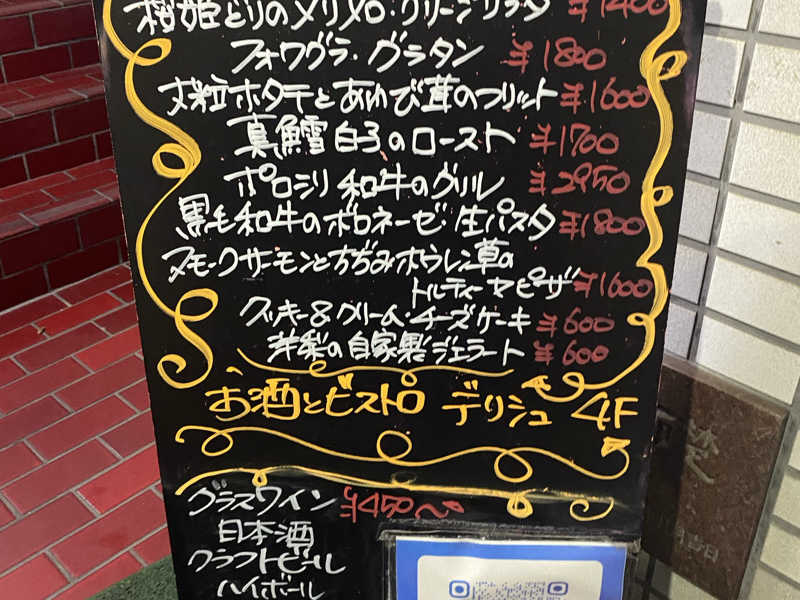 桜姫どりのメリメロ・クリームリゾット ¥1400
フォワグラ・グラタン ¥1800
大粒ホタテとあわび茸のフリット ¥1600
真鱈白子のロースト ¥1700
ポロシリ和牛のグリル ¥2950
黒毛和牛のボロネーゼ・生パスタ ¥1800
スモークサーモンとちぢみホウレン草の
トルティーヤピザ ¥1600
クッキー&クリーム・チーズケーキ ¥600
洋梨の自家製ジェラート ¥600
お酒とビストロ デリシュ 4F
グラスワイン ¥450〜
日本酒
クラフトビール
ハイボール